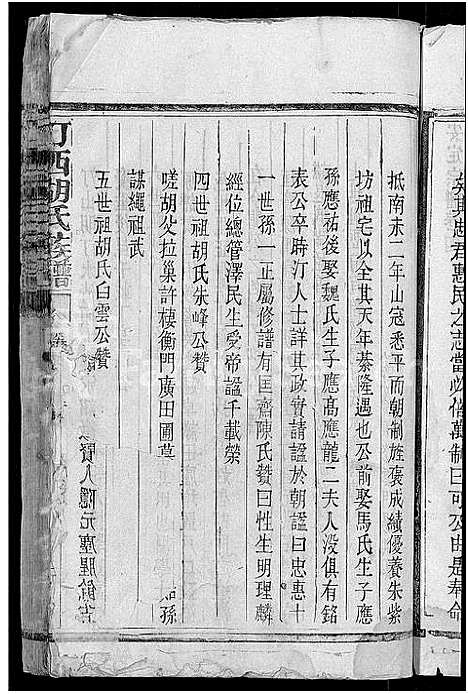 矣其忠君惠民之志當必偕萬制曰可公由是奉命
抵南未二年山寇悉平而朝制旌褒成績優養朱紫
坊祖宅以全其天年綦隆遇也公前娶馬氏生子應
孫應祐後娶魏氏生子應髙應龍二夫人没俱有銘
表公卒時汀人士詳其政實請諡於朝諡曰忠惠十
一世孫一正屬修譜有匡齋陳氏贊曰性生明理麟
經位總管澤民生受帝諡千載榮
四世祖胡氏朱峰公贊
嗟胡父拉巢許棲衡門廣田圃莫 如孫
謀繩祖武
五世祖胡氏白雲公贊
賢人隱元塵腥餘古
汀西胡氏族譜